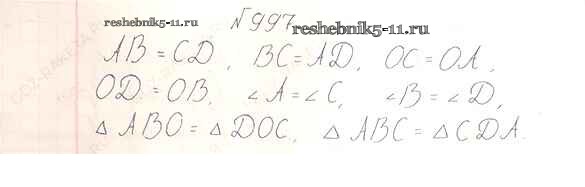 №997
reshebnik5-11.ru
reshebnik5-11.ru
AB = CD, BC = AD, OC = OA,
OD = OB, ∠A = ∠C, ∠B = ∠D,
△ ABO = △ DOC, △ ABC = △ CDA.